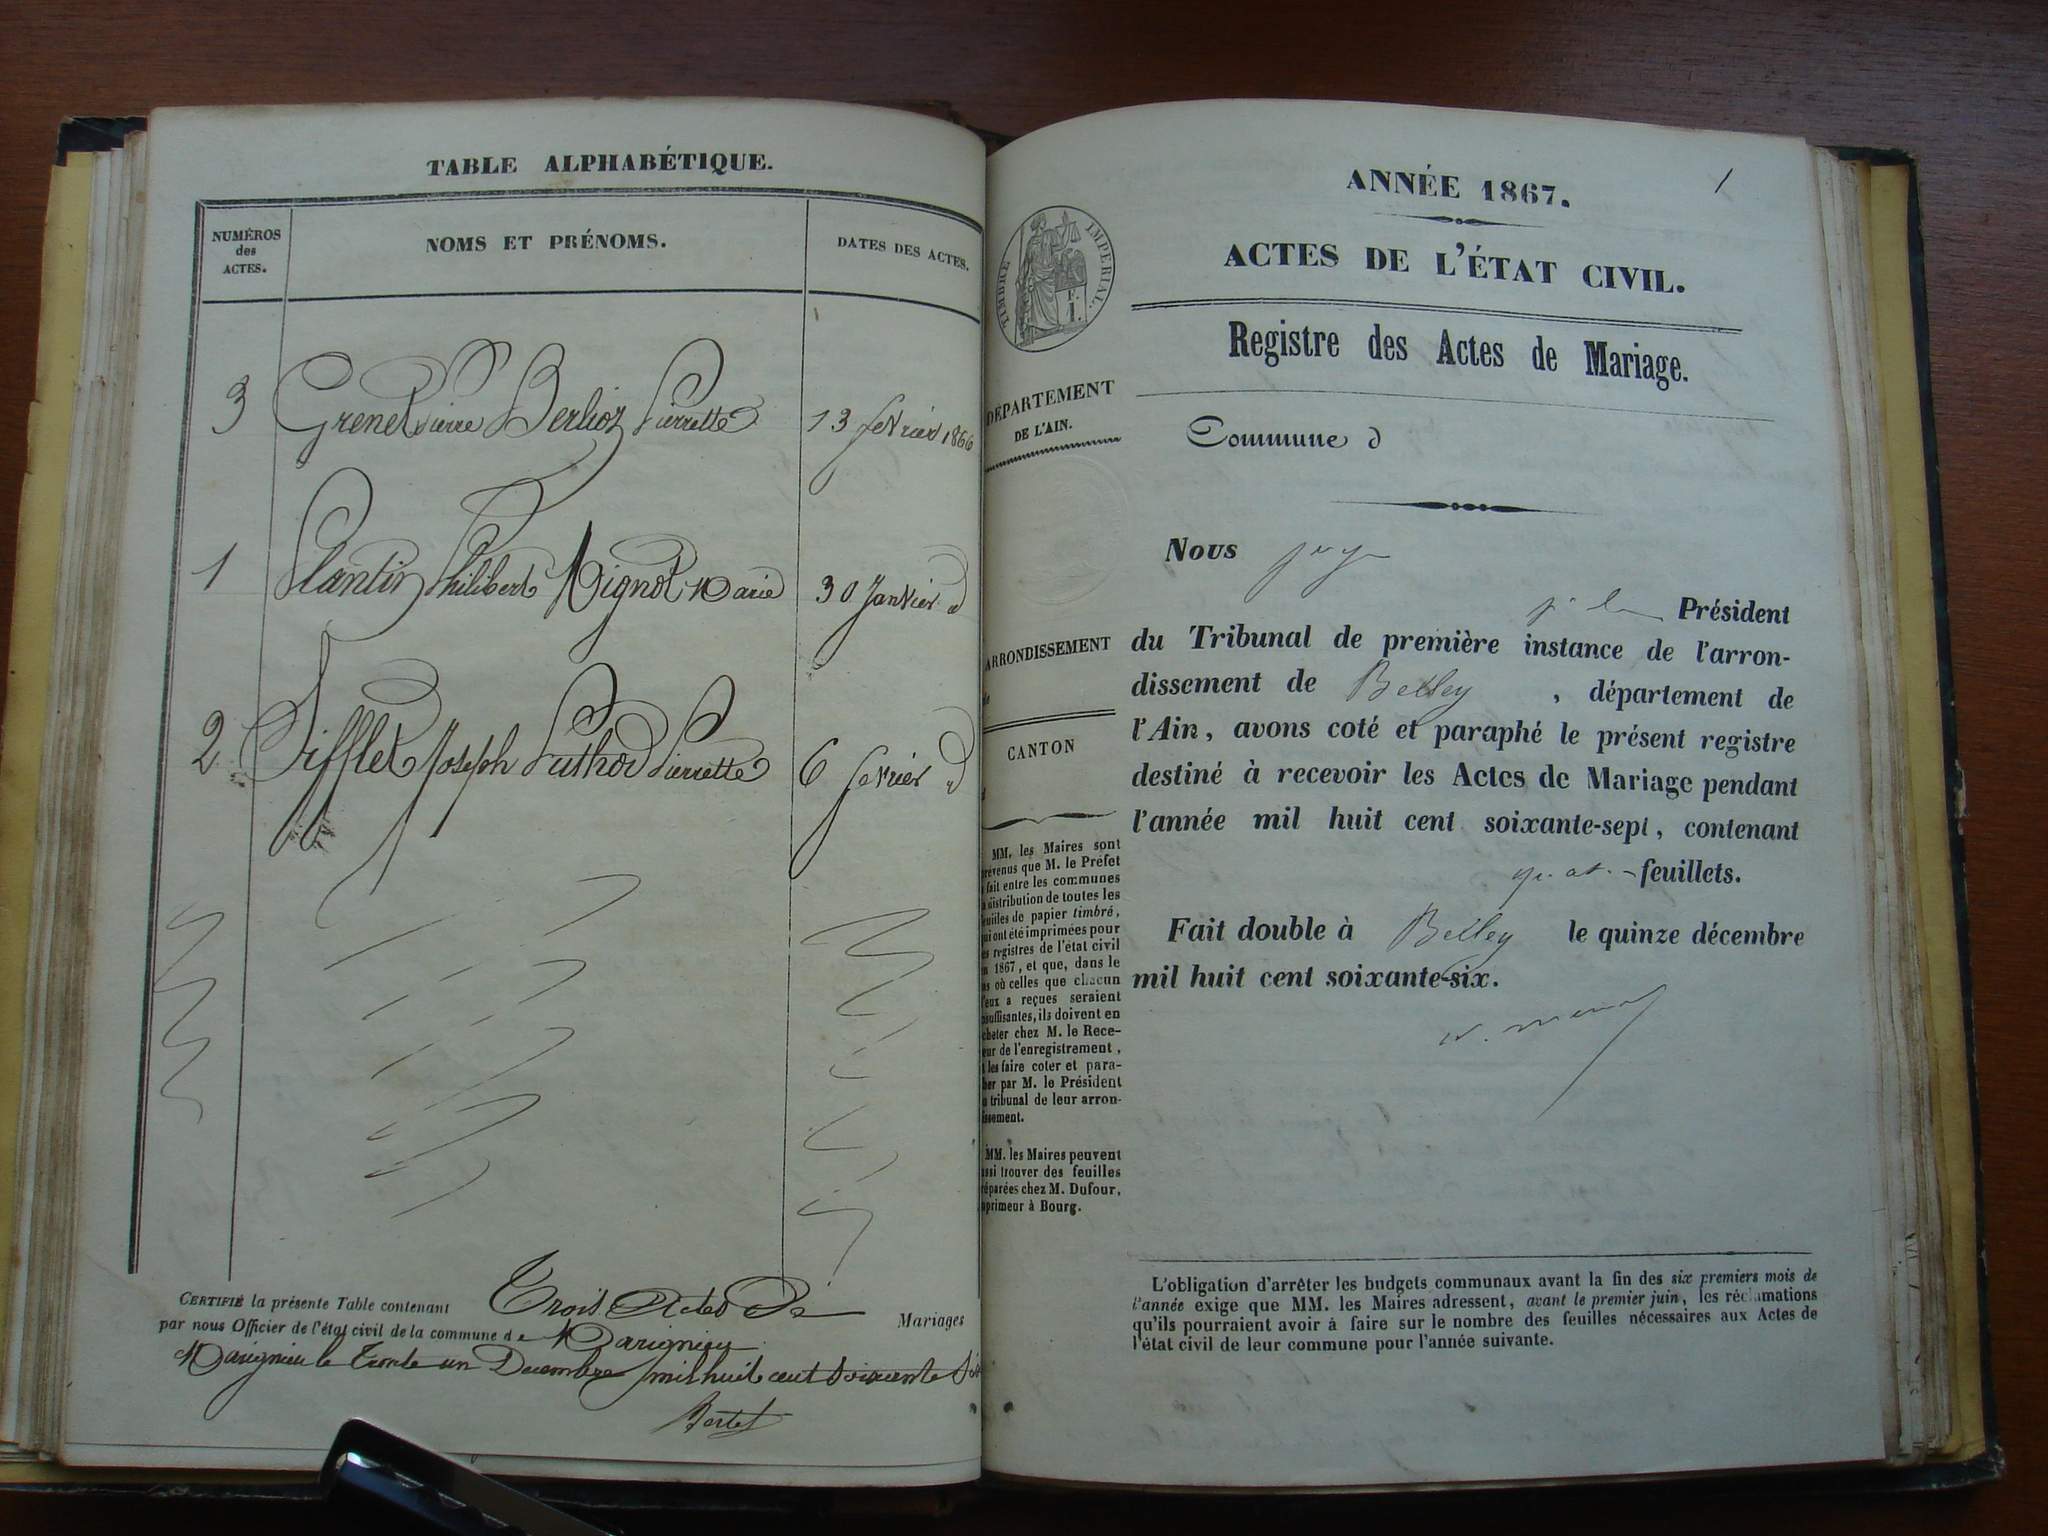 TABLE ALPHABÉTIQUE.
NUMÉROS des ACTES.
NOMS ET PRÉNOMS.
DATES DES ACTES.
3 Grenet Pierre Berlioz Pierrette 13 fevrier 1866
1 Plantin Philibert Mignot Marie 30 Janvier d
2 Sifflet Joseph Puthod Pierrette 6 fevrier d
CERTIFIÉ la présente Table contenant Trois Actes De Mariages
par nous Officier de l'état civil de la commune de Marignieu
Marignieu le Trente un Decembre mil huit cent Soixante Six
Bertet
1
ANNÉE 1867.
ACTES DE L'ÉTAT CIVIL.
TIMBRE IMPÉRIAL.
1.
Registre des Actes de Mariage.
DÉPARTEMENT
DE L'AIN.
Commune d
Nous juge
Président
du Tribunal de première instance de l'arron-
dissement de Belley, département de
l'Ain, avons coté et paraphé le présent registre
destiné à recevoir les Actes de Mariage pendant
l'année mil huit cent soixante-sept, contenant
feuillets.
Fait double à Belley le quinze décembre
mil huit cent soixante-six.
ARRONDISSEMENT
CANTON
MM. les Maires sont
prévenus que M. le Préfet
a fait entre les communes
la distribution de toutes les
feuilles de papier timbré,
qui ont été imprimées pour
les registres de l'état civil
en 1867, et que, dans le
cas où celles que chacun
d'eux a reçues seraient
insuffisantes, ils doivent en
acheter chez M. le Rece-
veur de l'enregistrement,
et les faire coter et para-
pher par M. le Président
du tribunal de leur arron-
dissement.
MM. les Maires peuvent
aussi trouver des feuilles
préparées chez M. Dufour,
imprimeur à Bourg.
L'obligation d'arrêter les budgets communaux avant la fin des six premiers mois de
l'année exige que MM. les Maires adressent, avant le premier juin, les réclamations
qu'ils pourraient avoir à faire sur le nombre des feuilles nécessaires aux Actes de
l'état civil de leur commune pour l'année suivante.